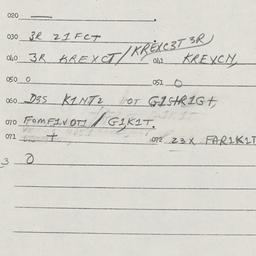 020 —
030 3R 21FCT
040 3R KREXCT/KREXC3T 3R 041 KREVCM,
050 0 051 0
060 D3S K1NT2 OT G1SHR1G+,
070 FOMF1VOT1 / G1,K1T.
071 + 072 23X FAR1K1T
3 0